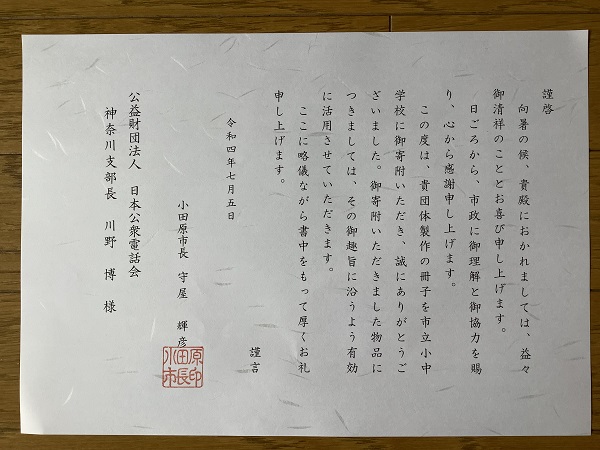 謹啓
向暑の候、貴殿におかれましては、益々
御清祥のこととお喜び申し上げます。
日ごろから、市政に御理解と御協力を賜
り、心から感謝申し上げます。
この度は、貴団体製作の冊子を市立小中
学校に御寄附いただき、誠にありがとうご
ざいました。御寄附いただきました物品に
つきましては、その御趣旨に沿うよう有効
に活用させていただきます。
ここに略儀ながら書中をもって厚くお礼
申し上げます。
謹言
令和四年七月五日
小田原市長 守屋 輝彦
小田原市長印
公益財団法人 日本公衆電話会
神奈川支部長 川野 博 様